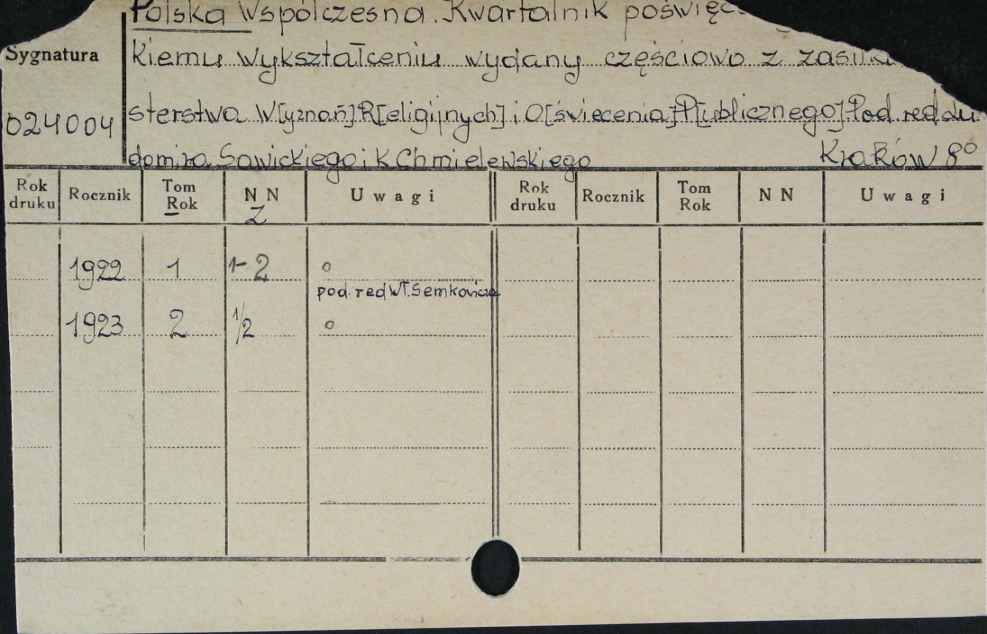 Polska Współczesna. Kwartalnik poświęc
Sygnatura
kiemu wykształceniu wydany częściowo z zasiłk
024004
sterstwa W[yznań] R[eligijnych] i O[świecenia] P[ublicznego] Pod red du
domira Sawickiego i K. Chmielewskiego Kraków 8°
Rok druku Rocznik Tom Rok NN Uwagi Rok druku Rocznik Tom Rok NN Uwagi
Z
1922 1 1-2 o
pod. red Wł. Semkowicza
1923 2 1/2 o